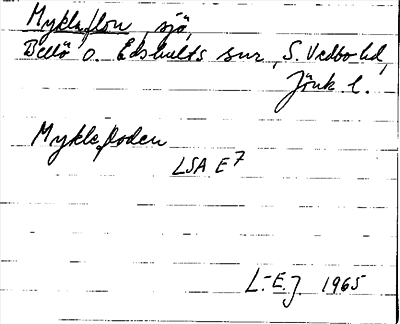 Mykleflon, sjö,
Bellö o. Edshults snr, S. Vedbo hd,
Jönk. l.
Myklefloden
LSA E7
L.-E.J. 1965